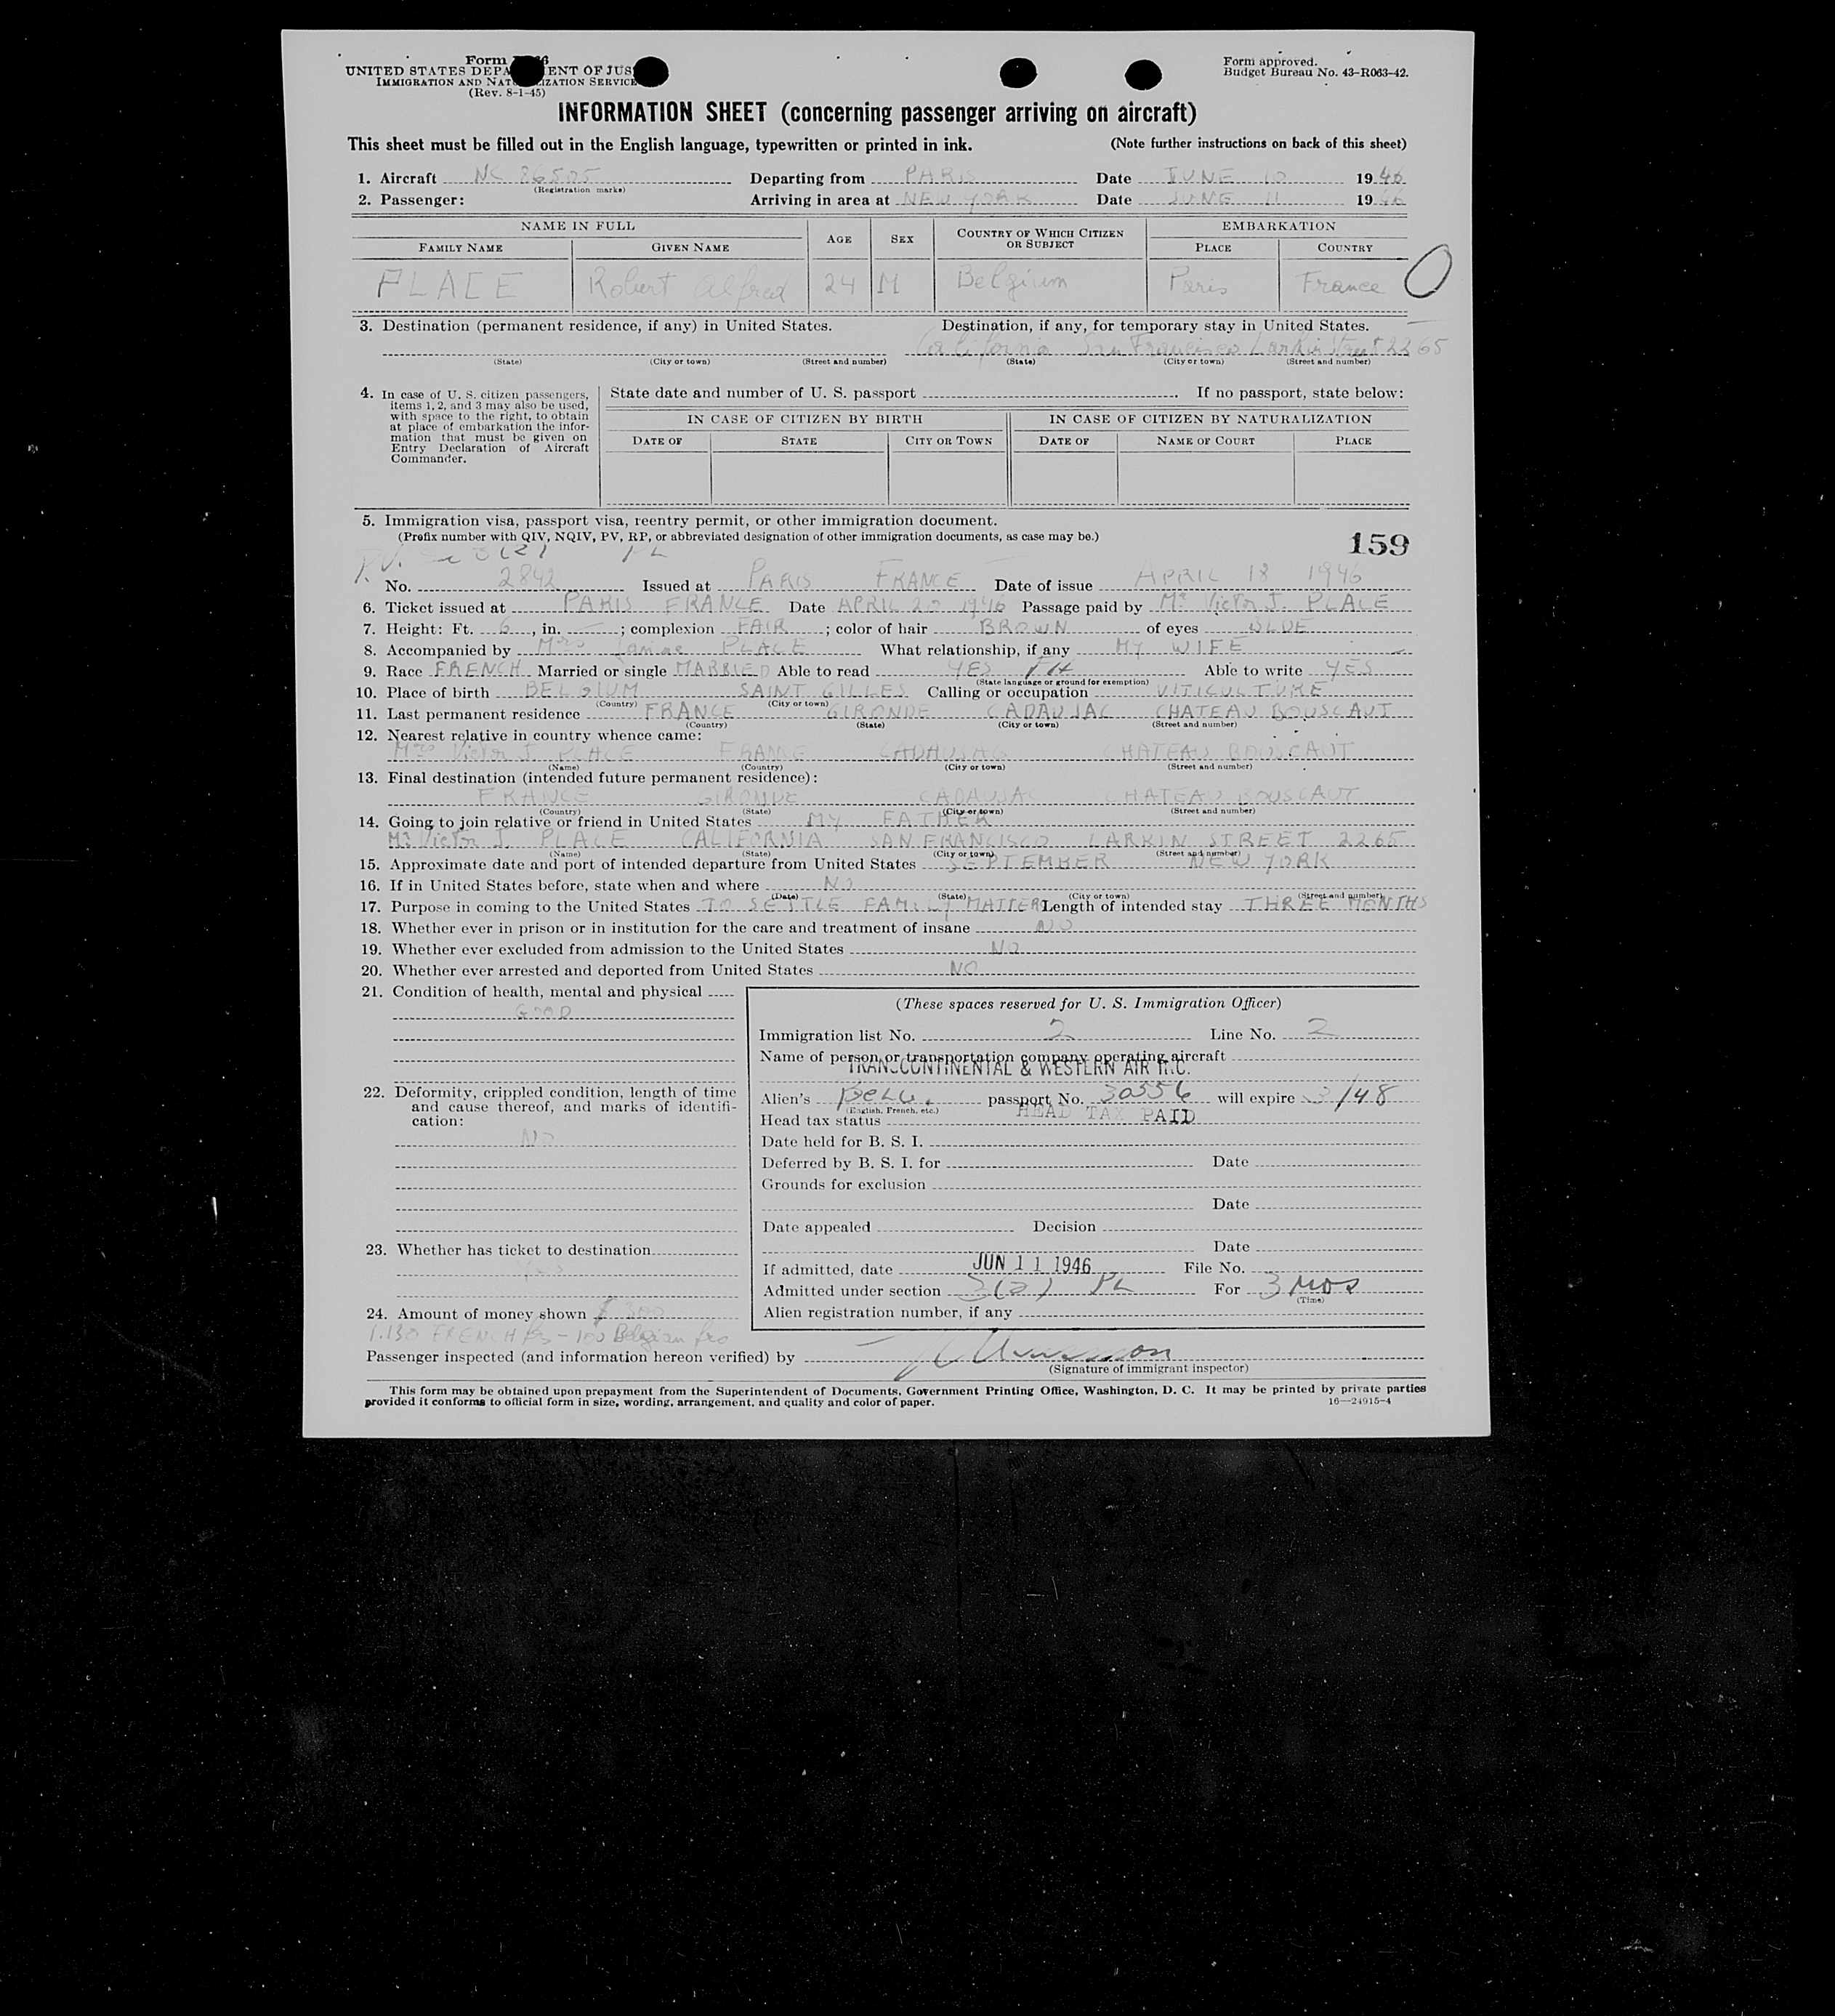 Form
UNITED STATES DEPA ENT OF JUS
IMMIGRATION AND NAT IZATION SERVICE
(Rev. 8-1-45)
Form approved.
Budget Bureau No. 43-R063-42.
INFORMATION SHEET (concerning passenger arriving on aircraft)
This sheet must be filled out in the English language, typewritten or printed in ink. (Note further instructions on back of this sheet)
1. Aircraft NC 86505 Departing from PARIS Date JUNE 10 1946
(Registration marks)
2. Passenger: Arriving in area at NEW YORK Date JUNE 11 1946
NAME IN FULL AGE SEX COUNTRY OF WHICH CITIZEN OR SUBJECT EMBARKATION
FAMILY NAME GIVEN NAME PLACE COUNTRY
PLACE Robert Alfred 24 M Belgium Paris France O
3. Destination (permanent residence, if any) in United States. Destination, if any, for temporary stay in United States.
California San Francisco Larkin Street 2265
(State) (City or town) (Street and number) (State) (City or town) (Street and number)
4. In case of U. S. citizen passengers, items 1, 2, and 3 may also be used, with space to the right, to obtain at place of embarkation the information that must be given on Entry Declaration of Aircraft Commander.
State date and number of U. S. passport If no passport, state below:
IN CASE OF CITIZEN BY BIRTH IN CASE OF CITIZEN BY NATURALIZATION
DATE OF STATE CITY OR TOWN DATE OF NAME OF COURT PLACE
5. Immigration visa, passport visa, reentry permit, or other immigration document.
(Prefix number with QIV, NQIV, PV, RP, or abbreviated designation of other immigration documents, as case may be.)
159
P.V. 3(2) PL
No. 2842 Issued at PARIS FRANCE Date of issue APRIL 18 1946
6. Ticket issued at PARIS FRANCE Date APRIL 20 1946 Passage paid by Mr Victor J. PLACE
7. Height: Ft. 6, in. — ; complexion FAIR ; color of hair BROWN of eyes BLUE
8. Accompanied by Mrs PLACE What relationship, if any MY WIFE
9. Race FRENCH Married or single MARRIED Able to read YES FH Able to write YES
(State language or ground for exemption)
10. Place of birth BELGIUM SAINT GILLES Calling or occupation VITICULTURE
(Country) (City or town)
11. Last permanent residence FRANCE GIRONDE CADAUJAC CHATEAU BOUSCAUT
(Country) (State) (City or town) (Street and number)
12. Nearest relative in country whence came:
Mrs Victor J. PLACE FRANCE CADAUJAC CHATEAU BOUSCAUT
(Name) (Country) (City or town) (Street and number)
13. Final destination (intended future permanent residence):
FRANCE GIRONDE CADAUJAC CHATEAU BOUSCAUT
(Country) (State) (City or town) (Street and number)
14. Going to join relative or friend in United States MY FATHER
Mr Victor J. PLACE CALIFORNIA SAN FRANCISCO LARKIN STREET 2265
(Name) (State) (City or town) (Street and number)
15. Approximate date and port of intended departure from United States SEPTEMBER NEW YORK
16. If in United States before, state when and where NO
(Date) (State) (City or town) (Street and number)
17. Purpose in coming to the United States TO SETTLE FAMILY MATTERS Length of intended stay THREE MENTHS
18. Whether ever in prison or in institution for the care and treatment of insane NO
19. Whether ever excluded from admission to the United States NO
20. Whether ever arrested and deported from United States NO
21. Condition of health, mental and physical
GOOD
22. Deformity, crippled condition, length of time and cause thereof, and marks of identification:
NO
23. Whether has ticket to destination
Yes
24. Amount of money shown $ 300
1.130 FRENCH frs - 100 Belgian frs
(These spaces reserved for U. S. Immigration Officer)
Immigration list No. 2 Line No. 2
Name of person or transportation company operating aircraft
TRANSCONTINENTAL & WESTERN AIR INC.
Alien's BELG. passport No. 30356 will expire 3/48
(English, French, etc.)
Head tax status HEAD TAX PAID
Date held for B. S. I.
Deferred by B. S. I. for Date
Grounds for exclusion
Date
Date appealed Decision
Date
If admitted, date JUN 11 1946 File No.
Admitted under section 3(2) PL For 3 MOS
(Time)
Alien registration number, if any
Passenger inspected (and information hereon verified) by
(Signature of immigrant inspector)
This form may be obtained upon prepayment from the Superintendent of Documents, Government Printing Office, Washington, D. C. It may be printed by private parties
provided it conforms to official form in size, wording, arrangement, and quality and color of paper. 16—24915-4